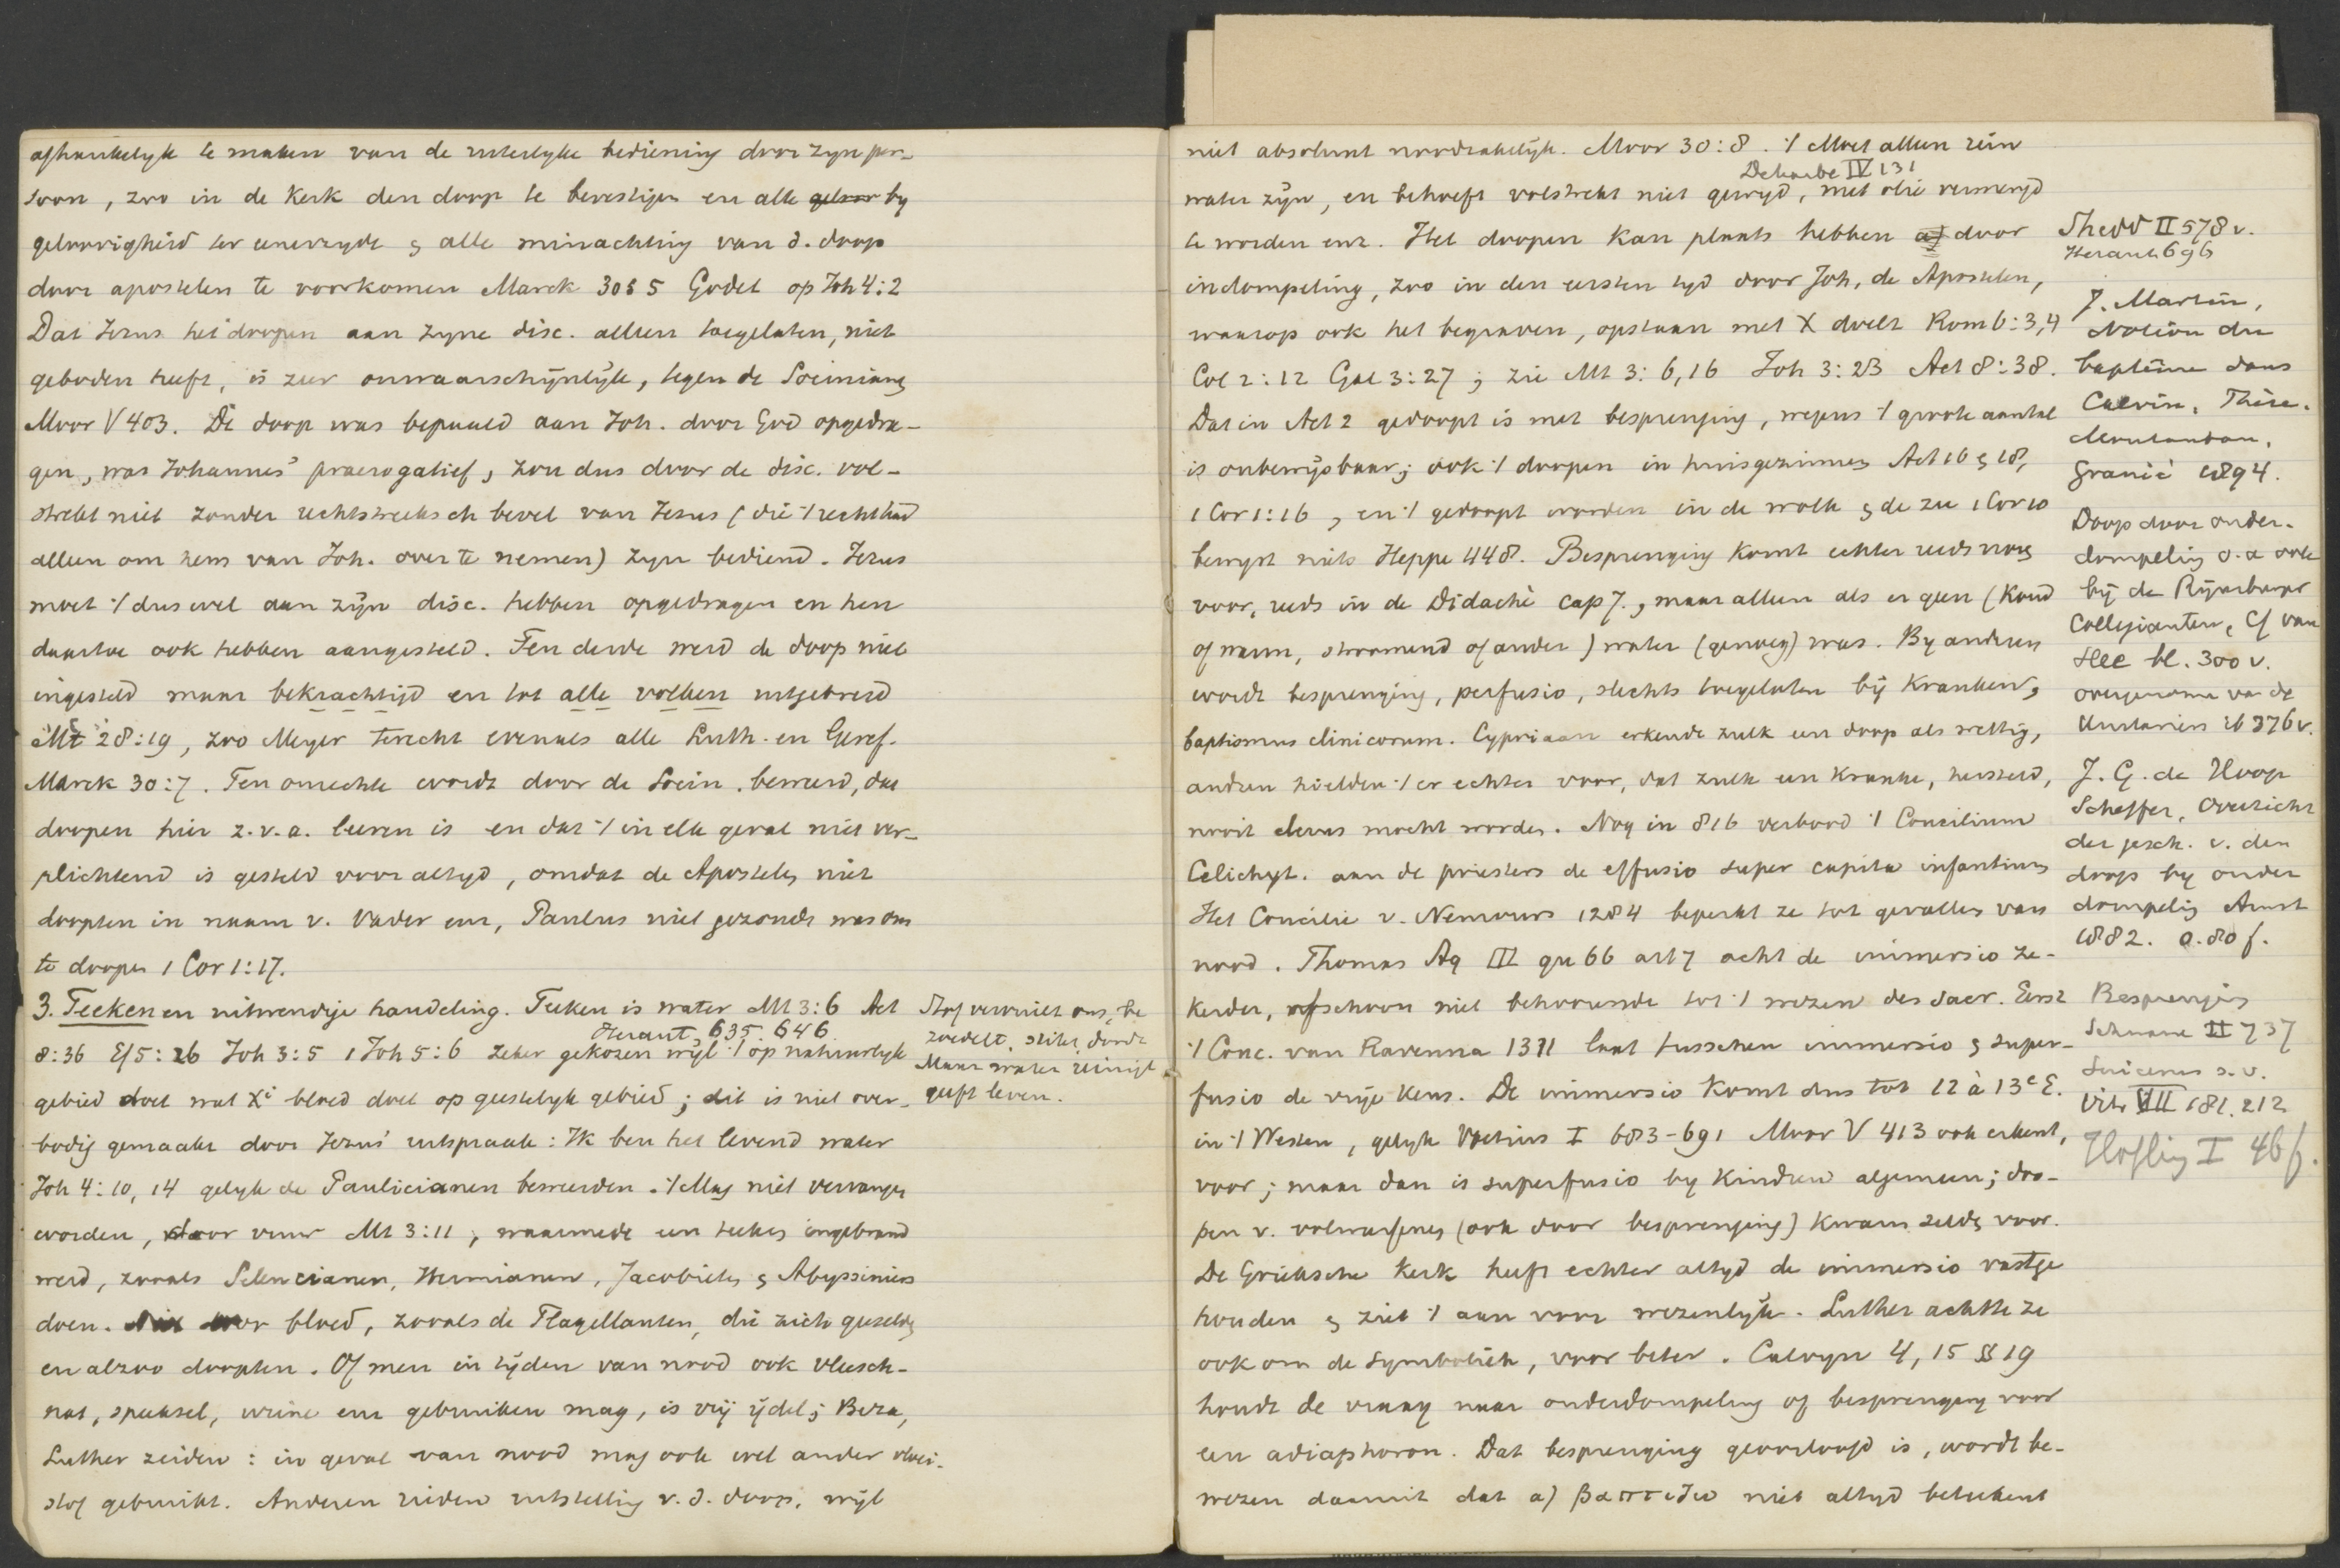 afhankelyk te maken van de uiterlyke bediening door zyn per-
soon, zoo in de Kerk den doop te bevestigen en alle geloov by
geloovigheid ter eenerzyde & alle minachting van d. doop
door apostelen te voorkomen Marck 30 § 5 Godet op Joh 4:2
Dat Jezus het doopen aan zyne disc. alleen toegelaten, niet
geboden heeft, is zeer onwaarschijnlijk, tegen de Socinianen
Moor V 403. De doop was bepaald aan Joh. door God opgedra-
gen, was Johannes' praerogatief, zou dus door de disc. vol-
strekt niet zonder rechtstreeksch bevel van Jezus (die 't recht had
alleen om hem van Joh. over te nemen) zyn bediend. Jezus
moet 't dus wel aan zijn disc. hebben opgedragen en hen
daartoe ook hebben aangesteld. Ten derde werd de doop niet
ingesteld maar bekrachtigd en tot alle volken uitgebreid
Mt 28:19, zoo Meyer terecht evenals alle Luth. en Geref.
Marck 30:7. Ten onrechte wordt door de Socin. beweerd, dat
doopen hier z.v.a. leeren is en dat 't in elk geval niet ver-
plichtend is gesteld voor altyd, omdat de Apostelen niet
doopten in naam v. Vader enz, Paulus niet gezonden was om
te doopen 1 Cor 1:17.
3. Teeken en uitwendige handeling. Teeken is water Mt 3:6 Act
Heraut 635. 646
8:36 Ef 5:26 Joh 3:5 1 Joh 5:6 zeker gekozen wyl 't op natuurlyk
gebied doet wat Xi bloed doet op geestelyk gebied; dit is niet over-
bodig gemaakt door Jezus' uitspraak: Ik ben het levend water
Joh 4:10, 14 gelyk de Paulicianen beweerden. 't Mag niet vervangen
worden, door vuur Mt 3:11, waarmede een teeken ingebrand
werd, zooals Seleucianen, Hermianen, Jacobieten & Abyssiniers
doen. door bloed, zooals de Flagellanten, die zich geeselden
en alzoo doopten. Of men in tijden van nood ook vleesch-
nat, speeksel, urine enz gebruiken mag, is vrij ijdel; Beza,
Luther zeiden: in geval van nood mag ook wel ander vloei-
stof gebruikt. Anderen rieden uitstelling v. d. doop, wijl
Stof vervuilt ons, be
zoedelt, stikt, doodt
Maar water reinigt
geeft leven.
niet absoluut noodzakelijk. Moor 30:8. 't Moet alleen rein
Deharbe IV 131
water zijn, en behoeft volstrekt niet gewijd, met olie vermengd
te worden enz. Het doopen kan plaats hebben a) door
indompeling, zoo in den eersten tyd door Joh, de Apostelen,
waarop ook het begraven, opstaan met X doelt Rom 6:3,4
Col 2:12 Gal 3:27; zie Mt 3:6,16 Joh 3:23 Act 8:38.
Dat in Act 2 gedoopt is met besprenging, wegens 't groote aantal
is onbewijsbaar; ook 't doopen in huisgezinnen Act 16 & 18,
1 Cor 1:16, en 't gedoopt worden in de wolk & de zee 1 Cor 10
bewyst niets Heppe 448. Besprenging komt echter reeds vroeg
voor, reeds in de Didachè cap 7, maar alleen als er geen (koud
of warm, stroomend of ander) water (genoeg) was. By anderen
wordt besprenging, perfusio, slechts toegelaten bij kranken,
baptismus clinicorum. Cypriaan erkende zulk een doop als wettig,
andren hielden 't er echter voor, dat zulk een kranke, hersteld,
nooit clerus mocht worden. Nog in 816 verbood 't Concilium
Celichyt. aan de priesters de effusio super capita infantium
Het Concilie v. Nemours 1284 beperkt ze tot gevallen van
nood. Thomas Aq III qu 66 art 7 acht de immersio ze-
kerder, ofschoon niet behoorende tot 't wezen des sacr. Eerst
't Conc. van Ravenna 1311 laat tusschen immersio & super-
fusio de vrije keus. De immersio komt dus tot 12 à 13e E.
in 't Westen, gelyk Voetius I 683-691 Moor V 413 ook erkent,
voor; maar dan is superfusio by kindren algemeen; doo-
pen v. volwassenen (ook door besprenging) kwam zelden voor.
De Grieksche Kerk heeft echter altyd de immersio vastge
houden & ziet 't aan voor wezenlijk. Luther achtte ze
ook om de symboliek, voor beter. Calvyn 4, 15 § 19
houdt de vraag naar onderdompeling of besprenging voor
een adiaphoron. Dat besprenging geoorloofd is, wordt be-
wezen daarmit dat a) βαπτιζω niet altyd beteekent
Shedd II 578 v.
Heraut 696
J. Martin,
Notion du
baptême dans
Calvin. Thèse.
Montauban.
Granié 1894.
Doop door onder-
dompeling o.a ook
bij de Rijnsburger
Collegianten, Cf van
Slee bl. 300 v.
overgenomen van de
Unitariërs ib 376 v.
J. G. de Hoop
Scheffer, Overzicht
der gesch. v. den
doop by onder
dompeling Amst
1882. a. 80 f.
Besprenging
Schwane II 737
Suicerus s.v.
Vitr VII 181. 212
Höfling I 46 f.